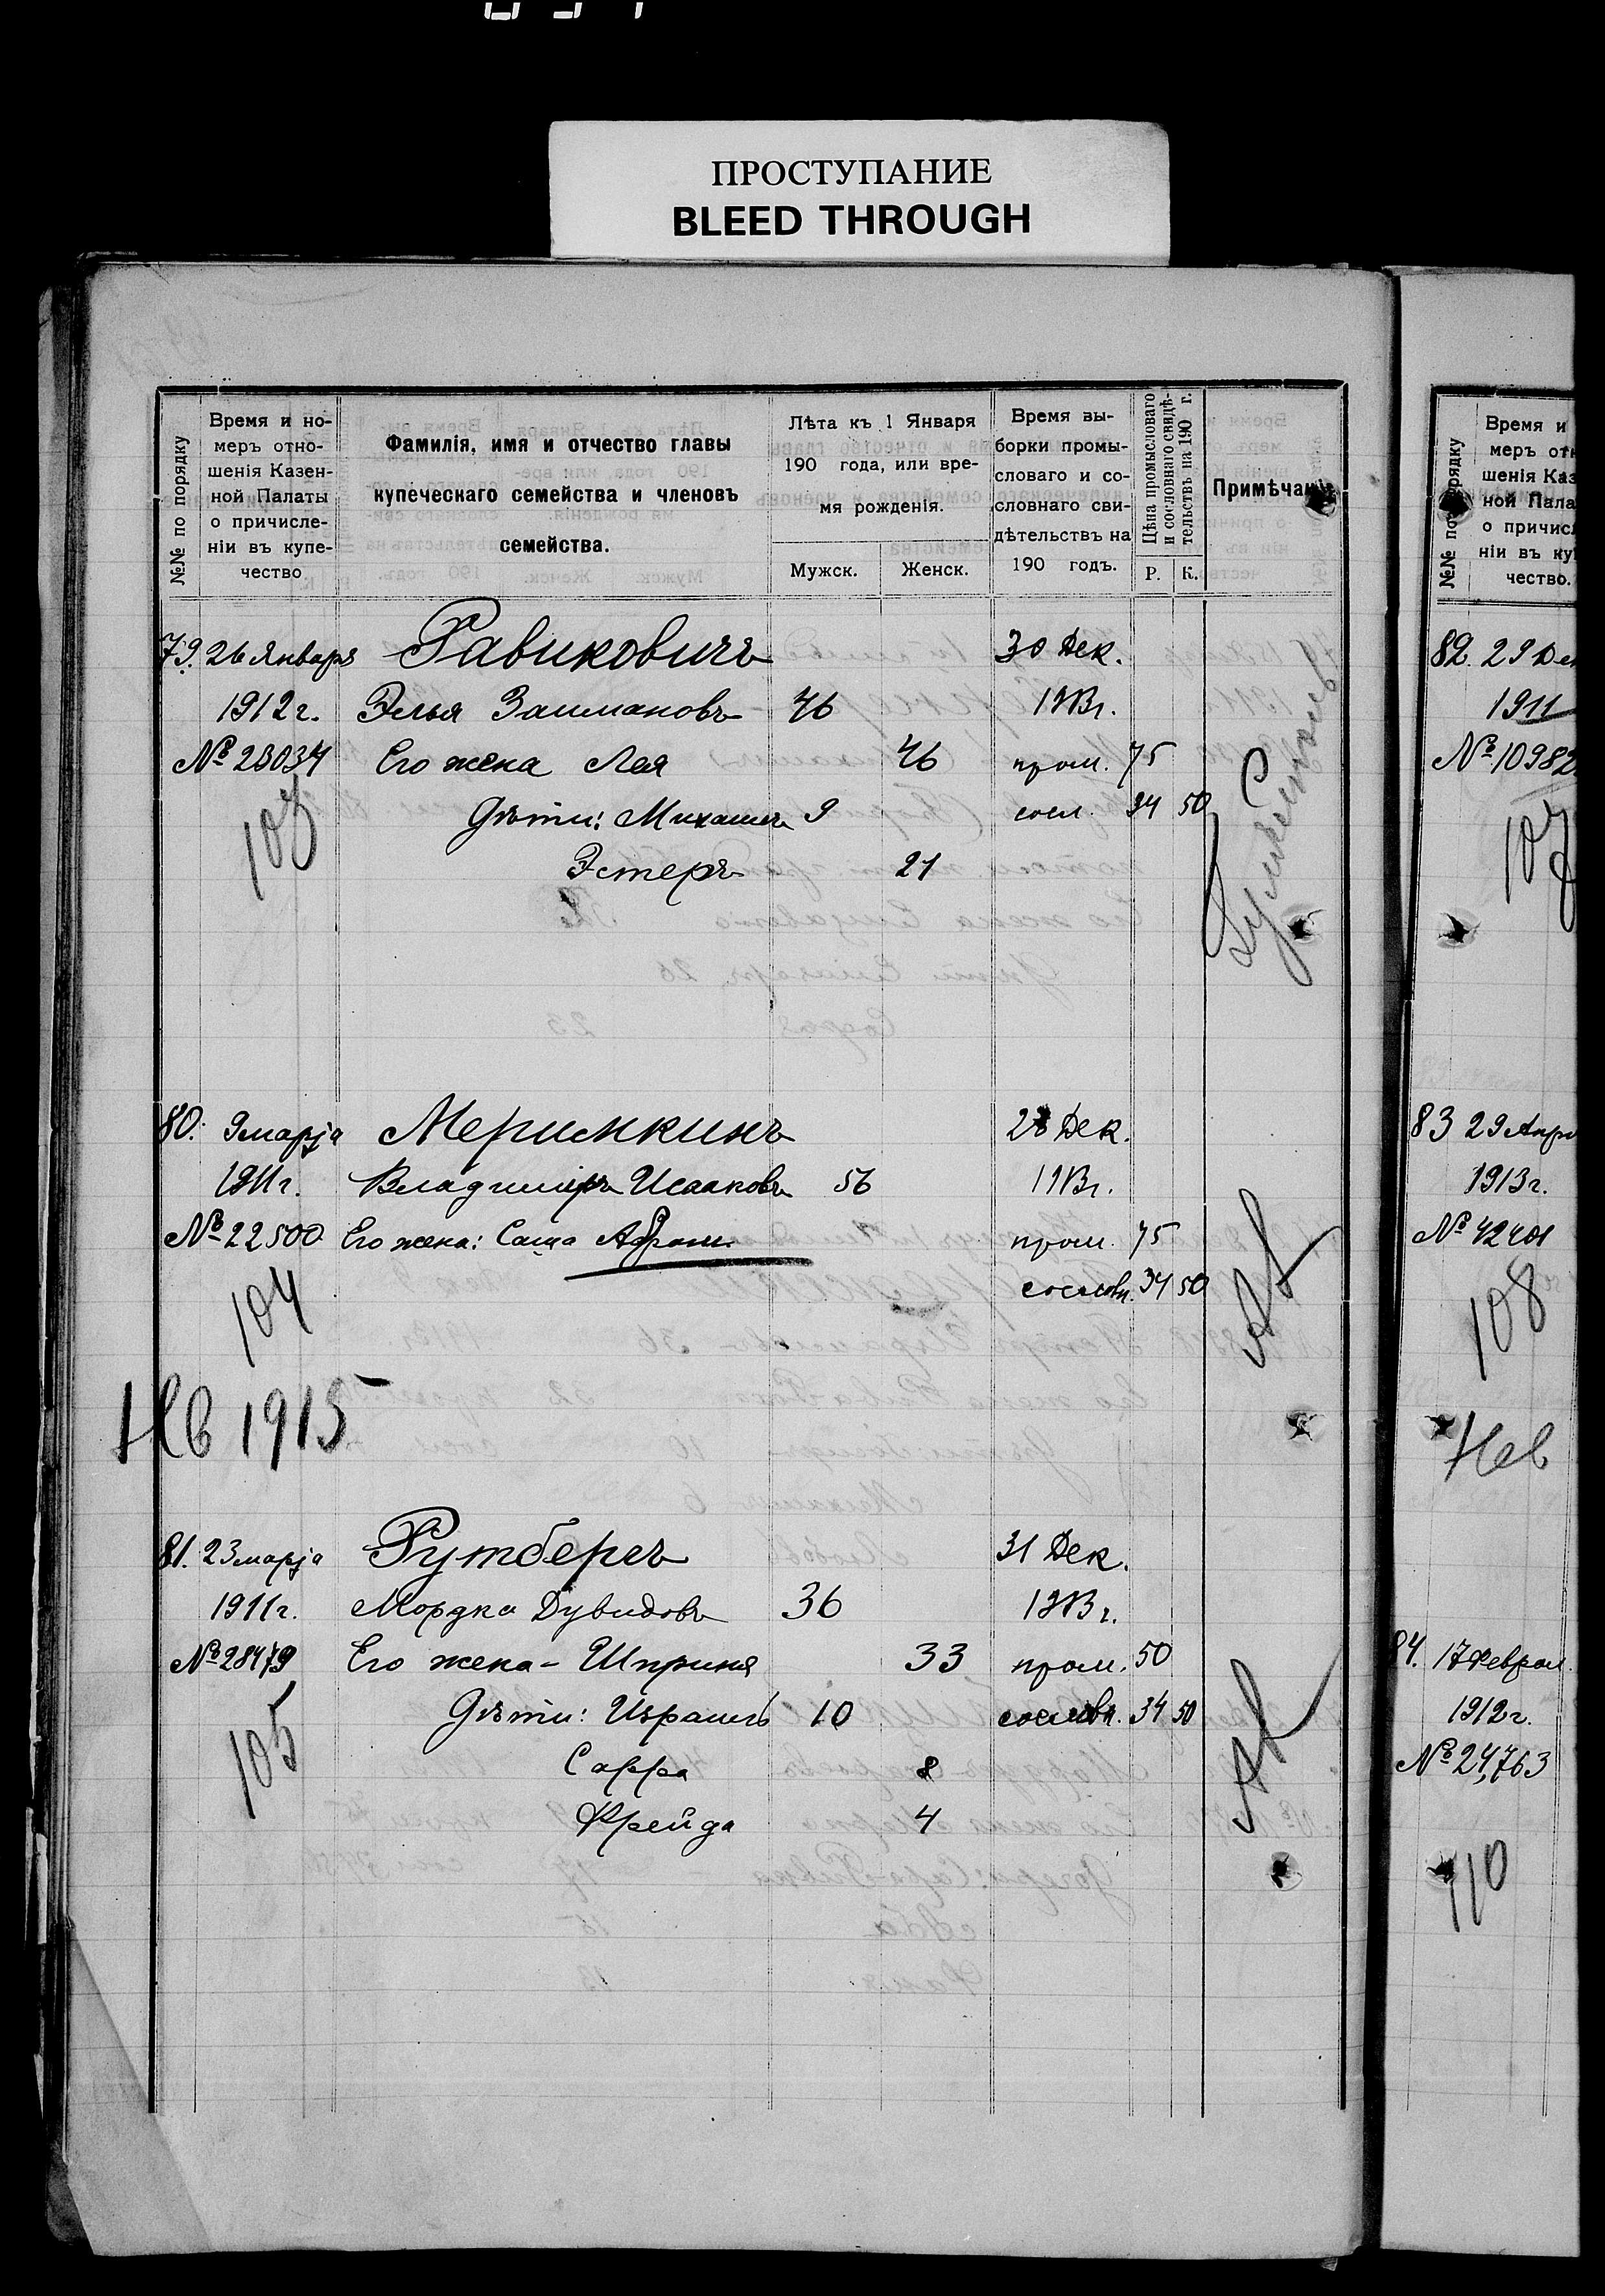 ПРОСТУПАНИЕ
BLEED THROUGH
№№ по порядку
Время и но-
меръ отно-
шенія Казен-
ной Палаты
о причисле-
ніи въ купе-
чество
Фамилія, имя и отчество главы
купеческаго семейства и членовъ
семейства.
Лѣта къ 1 Января
190 года, или вре-
мя рожденія.
Мужск.
Женск.
Время вы-
борки промы-
словаго и со-
словнаго сви-
дѣтельствъ на
190 годъ.
Цѣна промысловаго
и сословнаго свидѣ-
тельствъ на 190 г.
Р.
К.
Примѣчаніе
79. 26 Января Равиковичъ 30 Дек.
1912 г. Элья Залмановъ 46 1913 г.
№ 23034 Его жена Лея 46 пром. 75
Дѣти: Михаилъ 9 сосл. 34 50
103
Эстеръ 21
80. 9 марта Меримкинъ 28 Дек.
1911 г. Владимиръ Исааковъ 56 1913 г.
№ 22500 Его жена: Саша Абрам. пром. 75
сословн. 34 50
104
Нв 1915
81. 23 марта Рутбергъ 31 Дек.
1911 г. Мордка Дувидовъ 36 1913 г.
№ 28479 Его жена - Шприня 33 пром. 50
Дѣти: Израиль 10 сословн. 34 50
105
Сарра 8
Фрейда 4
№№ по порядку
Время и
меръ отн
шенія Каз
ной Пала
о причис
ніи въ ку
чество.
82. 29 Де
1911
№ 10982
107
83 29 Апр
1913 г.
№ 42401
108
Нев
84. 17 Феврал
1912 г.
№ 24,763
110